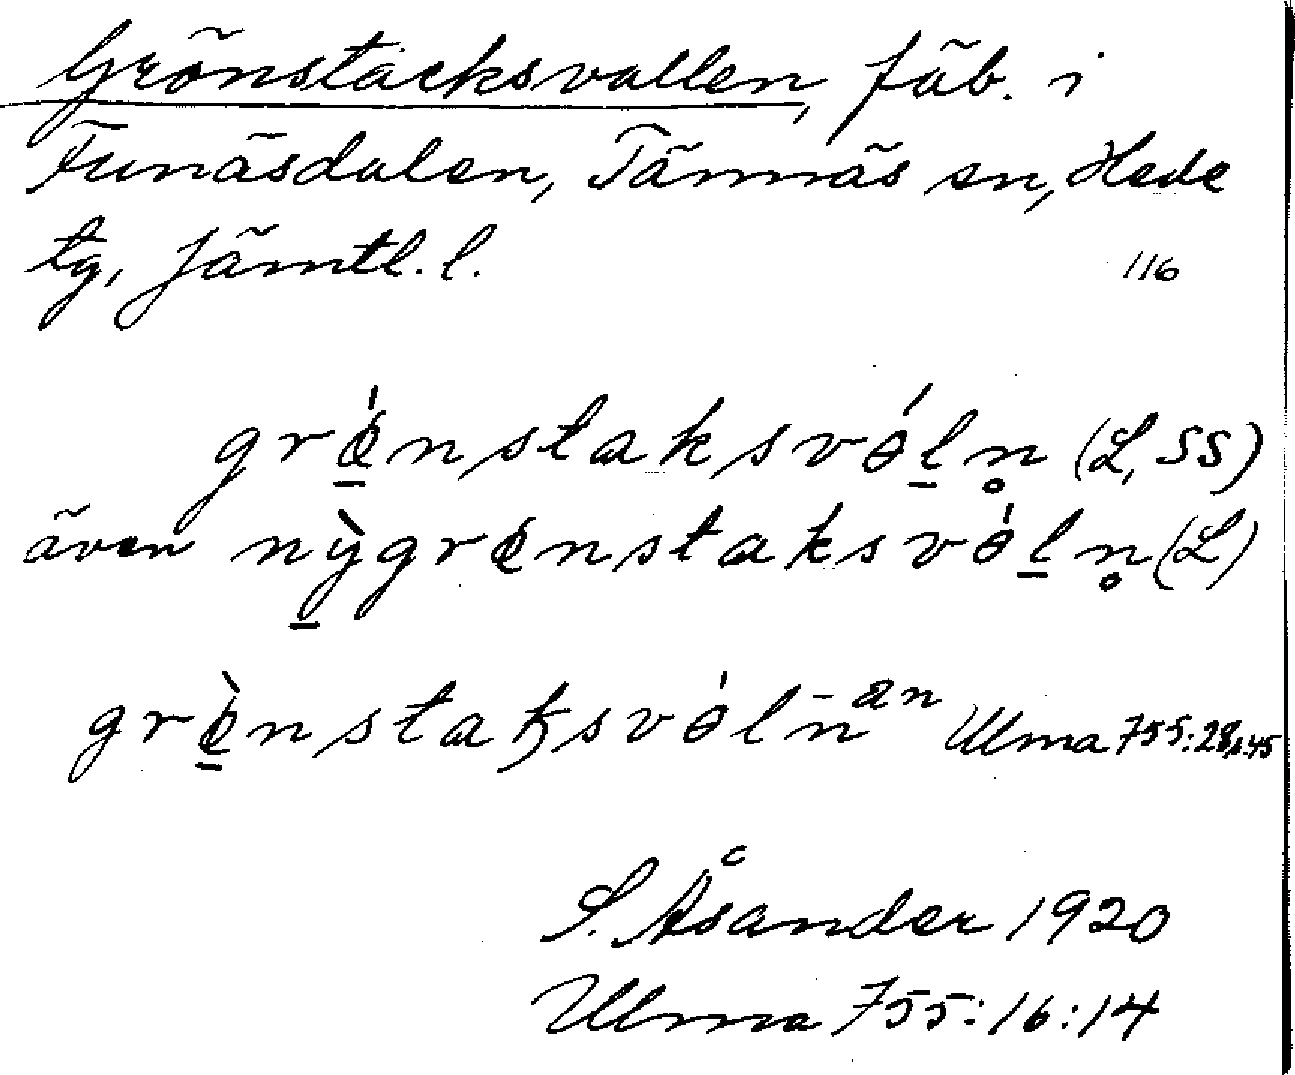 Grönstacksvallen, fäb. i
Funäsdalen, Tännäs sn, Hede
tg, Jämtl. l.
116
grǿnstaksvɵ́ln̥ (L, SS)
även nỳgrønstaksvɵ́ln̥ (L)
grø̀nstaꜧsvɵ́ln̄ an Ulma 755:28, s. 45
S. Åsander 1920
Ulma 755:16:14